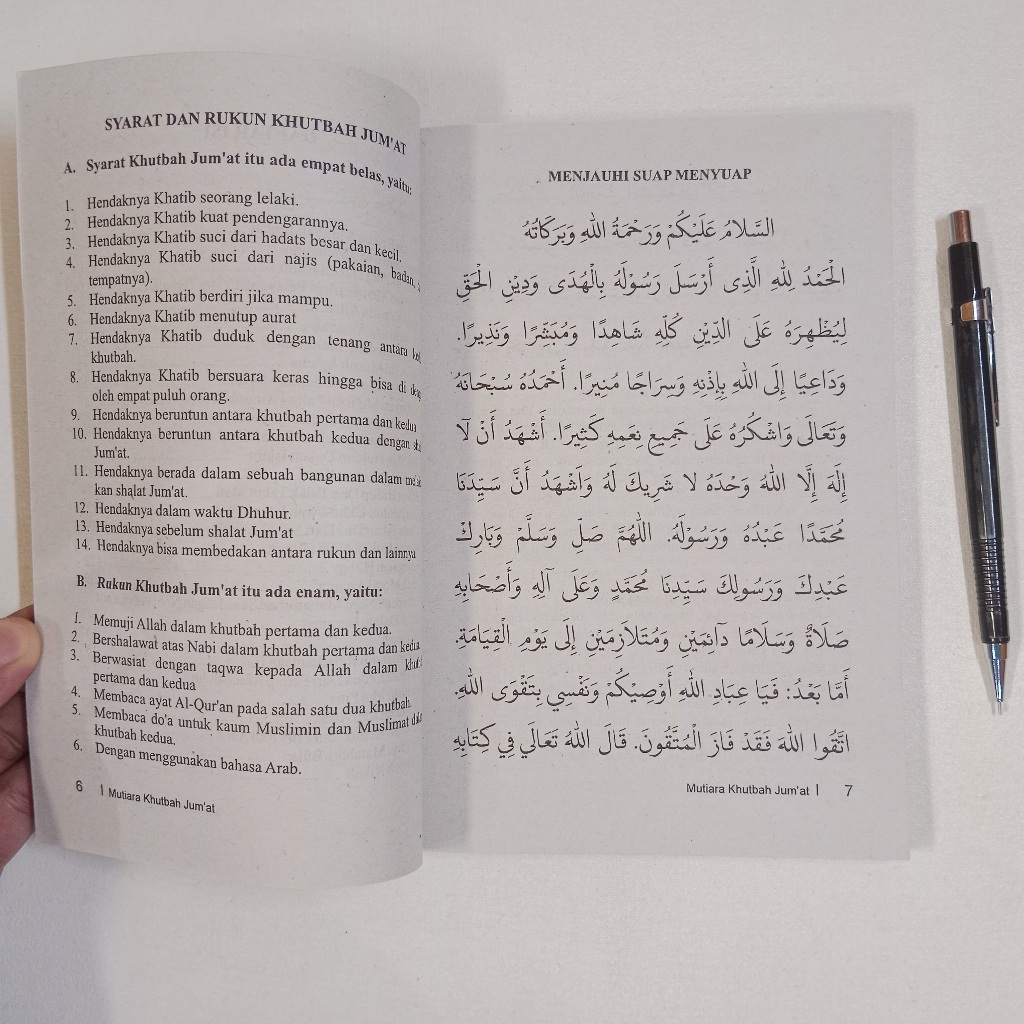 SYARAT DAN RUKUN KHUTBAH JUM'AT
A. Syarat Khutbah Jum'at itu ada empat belas, yaitu:
1. Hendaknya Khatib seorang lelaki.
2. Hendaknya Khatib kuat pendengarannya.
3. Hendaknya Khatib suci dari hadats besar dan kecil.
4. Hendaknya Khatib suci dari najis (pakaian, badan,
tempatnya).
5. Hendaknya Khatib berdiri jika mampu.
6. Hendaknya Khatib menutup aurat
7. Hendaknya Khatib duduk dengan tenang antara
khutbah.
8. Hendaknya Khatib bersuara keras hingga bisa di
oleh empat puluh orang.
9. Hendaknya beruntun antara khutbah pertama dan kedua
10. Hendaknya beruntun antara khutbah kedua dengan
Jum'at.
11. Hendaknya berada dalam sebuah bangunan dalam
kan shalat Jum'at.
12. Hendaknya dalam waktu Dhuhur.
13. Hendaknya sebelum shalat Jum'at
14. Hendaknya bisa membedakan antara rukun dan lainnya
B. Rukun Khutbah Jum'at itu ada enam, yaitu:
1. Memuji Allah dalam khutbah pertama dan kedua.
2. Bershalawat atas Nabi dalam khutbah pertama dan kedua
3. Berwasiat dengan taqwa kepada Allah dalam
pertama dan kedua
4. Membaca ayat Al-Qur'an pada salah satu dua khutbah.
5. Membaca do'a untuk kaum Muslimin dan Muslimat
khutbah kedua.
6. Dengan menggunakan bahasa Arab.
6 | Mutiara Khutbah Jum'at
MENJAUHI SUAP MENYUAP
السَّلَامُ عَلَيْكُمْ وَرَحْمَةُ اللهِ وَبَرَكَاتُهُ
الْحَمْدُ لِلّٰهِ الَّذِى أَرْسَلَ رَسُوْلَهُ بِالْهُدَى وَدِيْنِ الْحَقِّ
لِيُظْهِرَهُ عَلَى الدِّيْنِ كُلِّهِ شَاهِدًا وَمُبَشِّرًا وَنَذِيرًا.
وَدَاعِيًا إِلَى اللهِ بِإِذْنِهِ وَسِرَاجًا مُنِيرًا. أَحْمَدُهُ سُبْحَانَهُ
وَتَعَالَى وَاشْكُرُهُ عَلَى جَمِيعِ نِعَمِهِ كَثِيرًا. أَشْهَدُ أَنْ لَآ
إِلَهَ إِلَّا اللهُ وَحْدَهُ لا شَرِيكَ لَهُ وَاَشْهَدُ أَنَّ سَيِّدَنَا
مُحَمَّدًا عَبْدُهُ وَرَسُوْلُهُ. اللّٰهُمَّ صَلِّ وَسَلِّمْ وَبَارِكْ
عَبْدِكَ وَرَسُولِكَ سَيِّدِنَا مُحَمَّدٍ وَعَلَى آلِهِ وَأَصْحَابِهِ
صَلَاةً وَسَلَامًا دَآئِمَيْنِ وَمُتَلَازِمَيْنِ إِلَى يَوْمِ الْقِيَامَةِ.
أَمَّا بَعْدُ: فَيَا عِبَادِ اللهِ أُوْصِيْكُمْ وَنَفْسِي بِتَقْوَى اللهِ.
اتَّقُوا اللهَ فَقَدْ فَازَ الْمُتَّقُونَ. قَالَ اللهُ تَعَالَي فِي كِتَابِهِ
Mutiara Khutbah Jum'at | 7